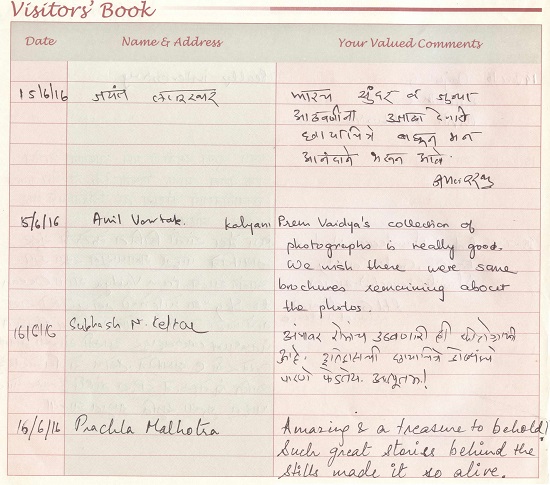 Visitors' Book
Date Name & Address Your Valued Comments
15/6/16 जयंत
सुंदर व जुन्या
आठवणींना उजाळा देणारी
छायाचित्रे पाहून मन
आनंदाने भरून आले.
15/6/16 Anil Vartak. Kalyani Prem Vaidya's collection of
photographs is really good.
We wish there were some
brochures remaining about
the photos.
16/6/16 Subhash N. Kelkar अंगावर रोमांच उठवणारी ही
आहे. इतिहासाची छायाचित्रे डोळ्यांचे
पारणे फेडतेय. अद्भुतम!
16/6/16 Prachla Malhotra Amazing & a treasure to behold!
Such great stories behind the
stills made it so alive.